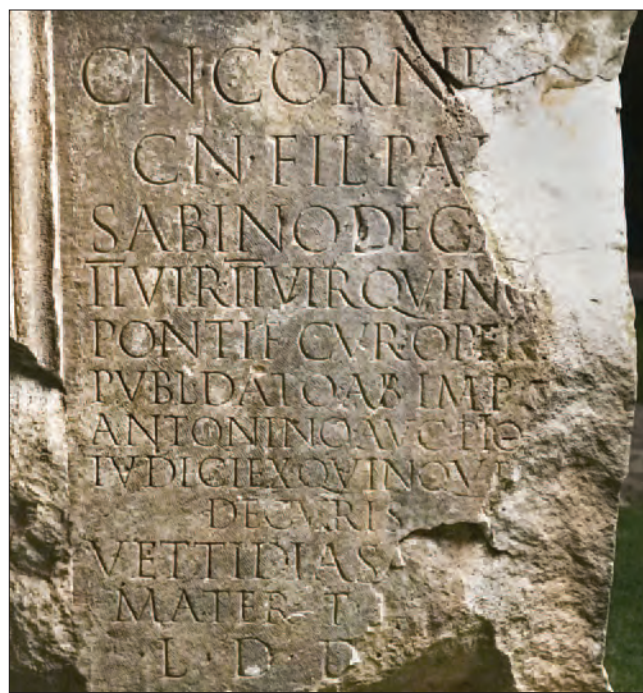 CN CORNE
CN · FIL PA
SABINO · DEC
IIVIR IIVIR QVIN
PONTIF CVR · OPER
PVBL DATO AB IMP
ANTONINO AVG PIO
IVDICI EX QVINQVE
DECVRIS
VETTIDIA S
MATER T
L · D D